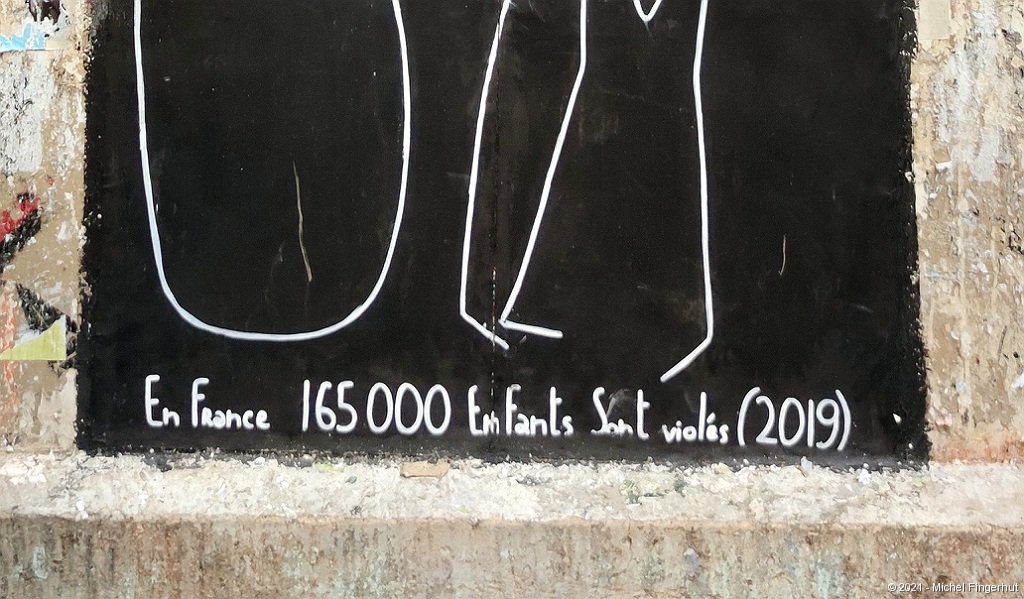 En France 165000 Enfants Sont violés (2019)
© 2021 - Michel Fingerhut